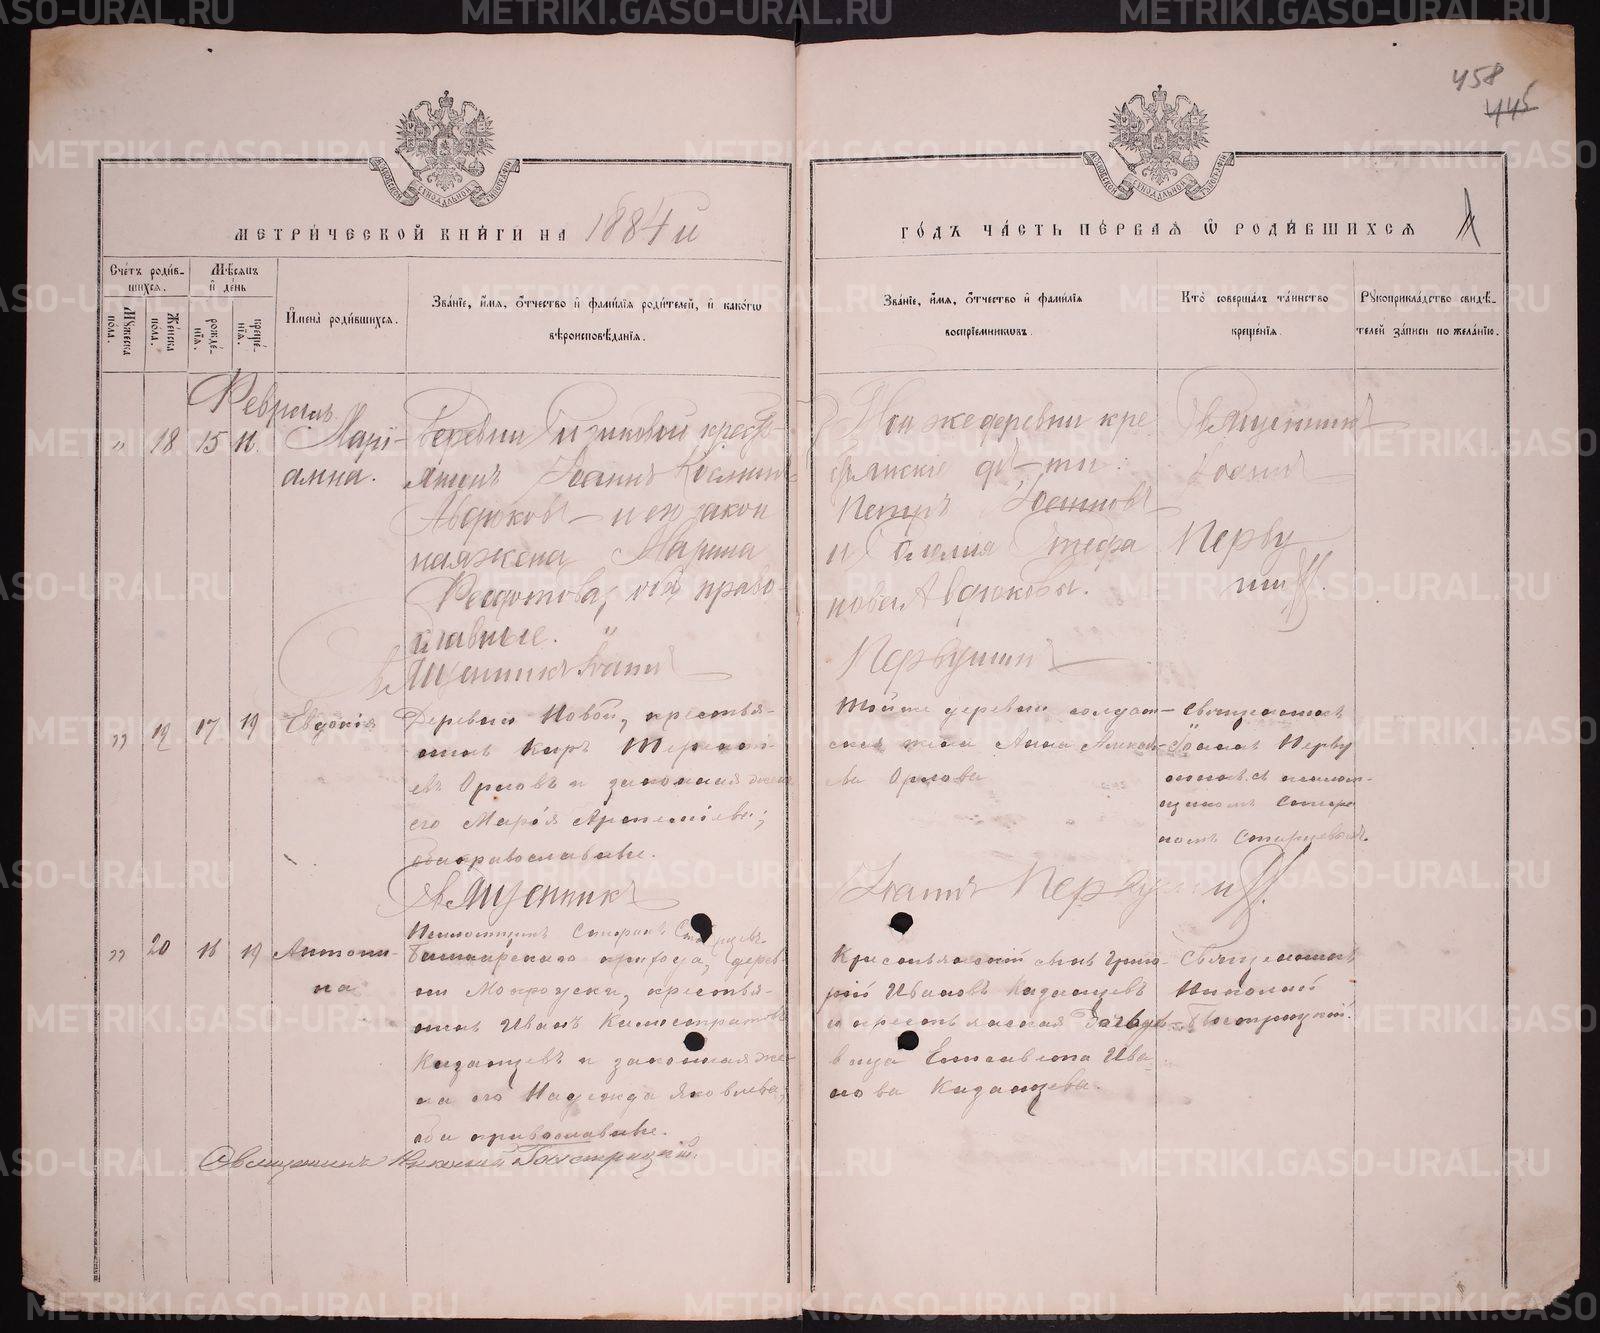 METRIKI.GASO-URAL.RU
458
445
МОСКОВСКОЙ СѴНОДАЛЬНОЙ ТИПОГРАФІИ
МЕТРИ́ЧЕСКОЙ КНИ́ГИ НА 1884 й
ГО́ДЪ ЧА́СТЬ ПЕ́РВАѦ Ѡ҆ РОДИ́ВШИХСѦ
Сче́тъ роди́вшихсѧ.
Мꙋ́жеска по́ла.
Же́нска по́ла.
Мѣ́сѧцъ и҆ де́нь
рожде́нїѧ.
креще́нїѧ.
И҆мена̀ роди́вшихсѧ.
Зва́нїе, и҆́мѧ, ѻ҆́тчество и҆ фами́лїѧ роди́телей, и҆ како́гѡ
вѣроисповѣ́данїѧ.
Зва́нїе, и҆́мѧ, ѻ҆́тчество и҆ фами́лїѧ
воспрїе́мникѡвъ.
Кто̀ соверша́лъ та́инство
креще́нїѧ.
Рꙋкоприкла́дство свидѣ́-
телей за́писи по жела́нїю.
Февраль
„ 18 15
Марі-
анна.
Деревни
Іоаннъ Космин
Авдюковъ и его закон
ная жена Марина
Федотова, оба право-
славные.
Той же деревни кре
стьянскіе дѣ-ти:
Петръ Іоанновъ
и Стефа
нова Авдюковы.
Священникъ
Іоаннъ
Перву
шинъ.
Священникъ Іоаннъ
Первушинъ
„ 19 17 19 Евдокія
Деревни Новой, крестья-
нинъ Киръ
евъ Орловъ и законная жена
его Марія Артеміева;
оба православные.
Той же деревни солдат-
ская жена Анна
ва Орлова
Священникъ
Іоаннъ Перву
шинъ съ псалом-
щикомъ
Старцевымъ.
Священникъ
Іоаннъ Первушинъ.
Псаломщикъ Старцевъ.
„ 20 16 19 Антони-
на
прихода, дерев-
ни Мокроуски, крестья-
нинъ Иванъ Калистратовъ
Каданцевъ и законная же-
на его Надежда Яковлева,
оба православные.
Крестьянскій сынъ Григо-
рій Ивановъ Каданцевъ
и крестьянская дѣ-
вица Елисавета Ива-
нова Каданцева.
Священникъ
Николай
Священникъ Николай